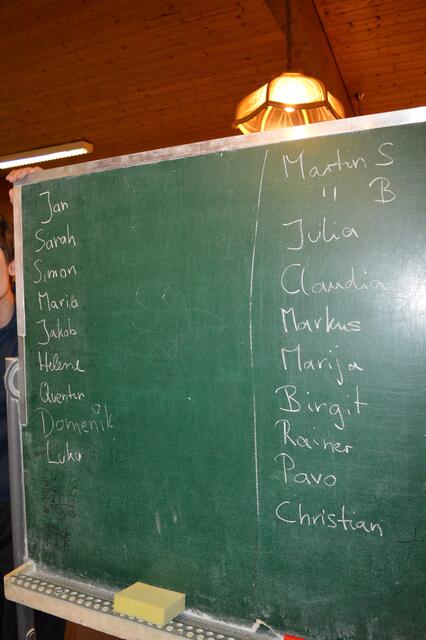 Jan
Sarah
Simon
Maria
Jakob
Helene
Quentin
Domenik
Luka
Martin S
" B
Julia
Claudia
Markus
Marija
Birgit
Rainer
Pavo
Christian